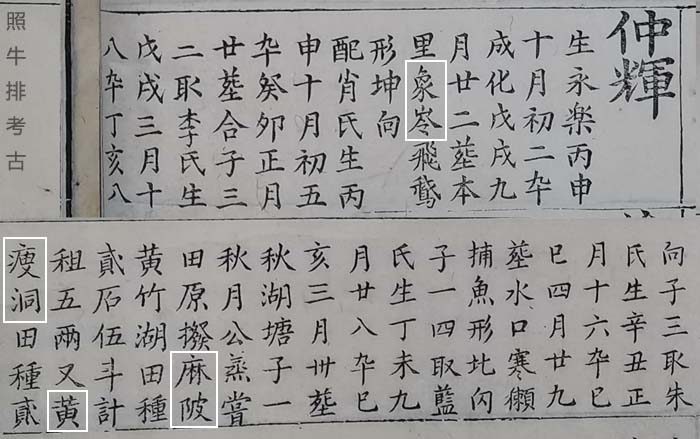 仲輝
生永楽丙申
十月初二卒
成化戊戌九
月廿二塟本
里象岺飛鵞
形坤向
配肖氏生丙
申十月初五
卒癸夘正月
廿塟合子三
二取李氏生
戊戌三月十
八卒丁亥八
照牛排考古
向子三取朱
氏生辛丑正
月十六卒巳
巳四月廿九
塟水口寒獺
捕魚形北向
子一四取藍
氏生丁未九
月廿八卒巳
亥三月卅塟
秋湖塘子一
秋月公烝嘗
田原撥麻陂
黄竹湖田種
貳石伍斗計
租五兩又黄
瘦洞田種貳